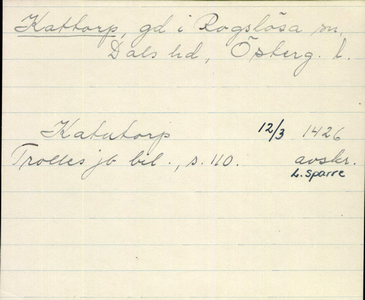 Kattorp, gd i Rogslösa sn.
Dals hd, Österg. l.
Katatorp 12/3 1426
Trolles jb bil., s. 110. avskr.
L. Sparre